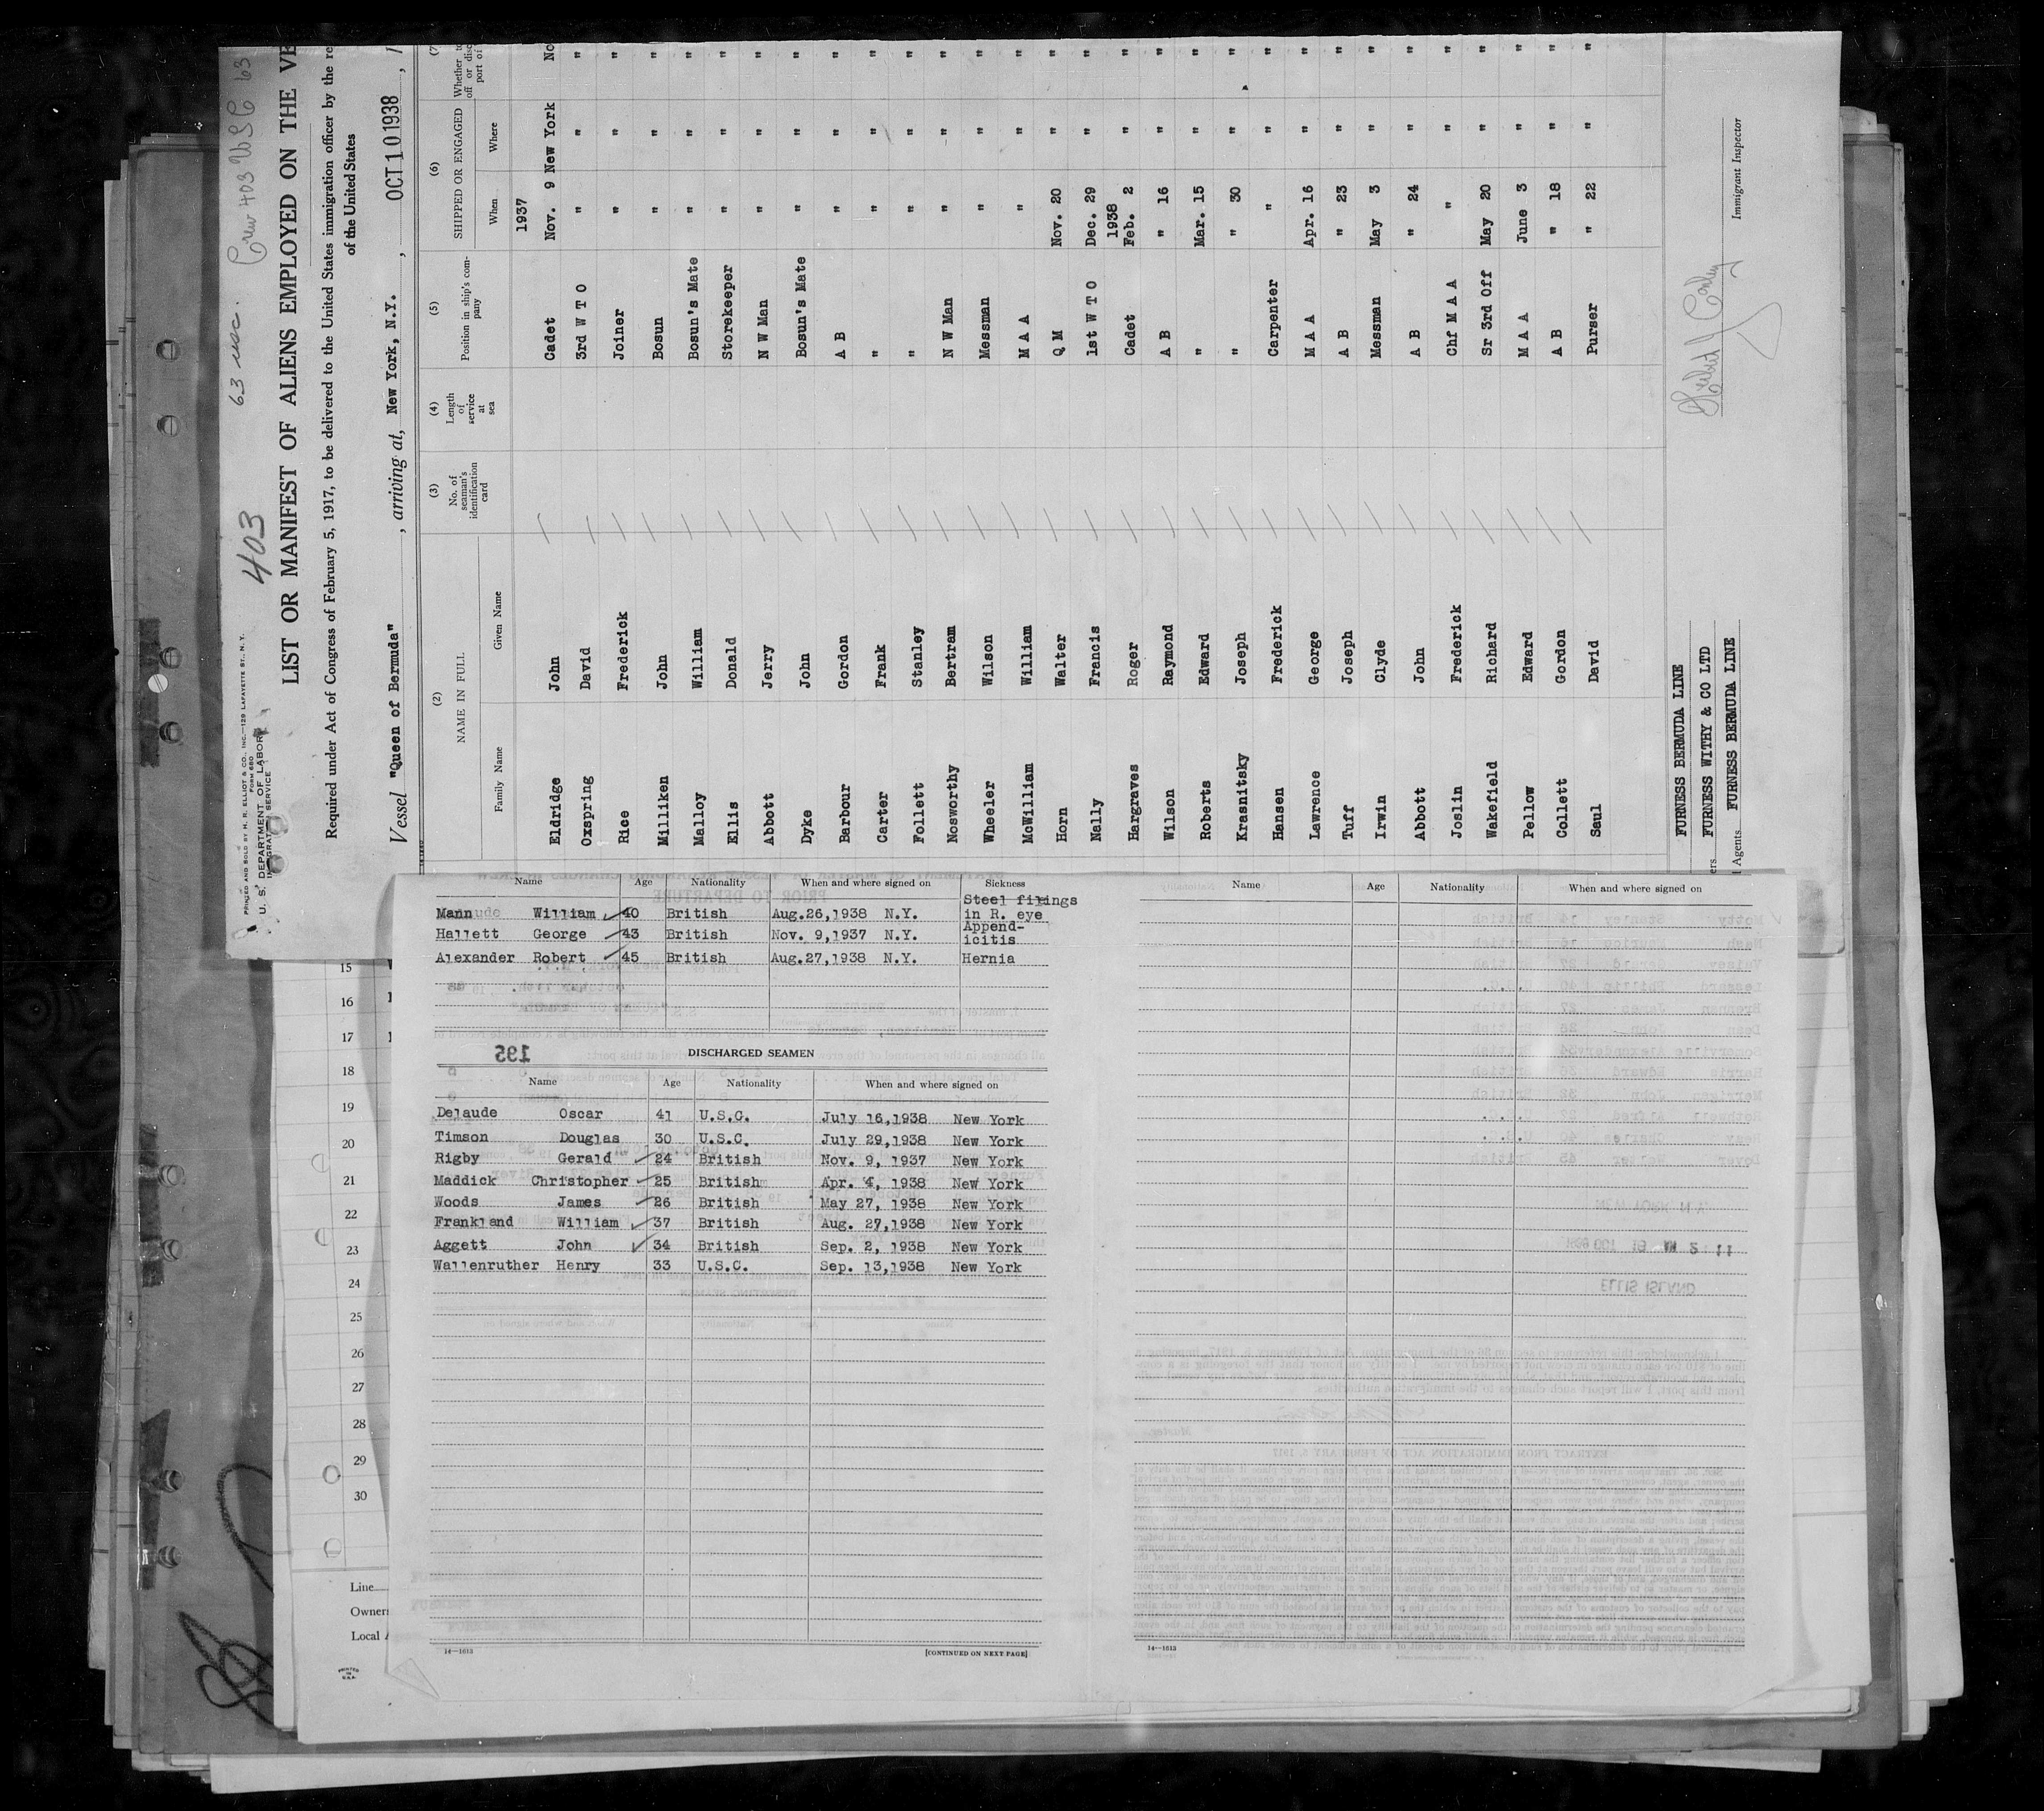 63 usc. Crew 403 USC 63
403
PRINTED AND SOLD BY H. R. ELLIOT & CO., INC.—129 LAFAYETTE ST., N. Y.
FORM 680
U. S. DEPARTMENT OF LABOR
IMMIGRATION SERVICE
LIST OR MANIFEST OF ALIENS EMPLOYED ON THE VE
Required under Act of Congress of February 5, 1917, to be delivered to the United States immigration officer by the re
of the United States
Vessel "Queen of Bermuda", arriving at, New York, N.Y., OCT 10 1938, 1
(2) (3) (4) (5) (6) (7)
NAME IN FULL No. of seaman's identification card Length of service at sea Position in ship's company SHIPPED OR ENGAGED Whether to
off or disc
port of
Family Name Given Name When Where
1937
Eldridge John Cadet Nov. 9 New York No
Oxspring David 3rd W T O " " "
Rice Frederick Joiner " " "
Milliken John Bosun " " "
Malloy William Bosun's Mate " " "
Ellis Donald Storekeeper " " "
Abbott Jerry N W Man " " "
Dyke John Bosun's Mate " " "
Barbour Gordon A B " " "
Carter Frank " " " "
Follett Stanley " " " "
Nosworthy Bertram N W Man " " "
Wheeler Wilson Messman " " "
McWilliam William M A A " " "
Horn Walter Q M Nov. 20 " "
Nally Francis 1st W T O Dec. 29 " "
1938
Hargraves Roger Cadet Feb. 2 " "
Wilson Raymond A B " 16 " "
Roberts Edward " Mar. 15 " "
Krasnitsky Joseph " " 30 " "
Hansen Frederick Carpenter " " "
Lawrence George M A A Apr. 16 " "
Tuff Joseph A B " 23 " "
Irwin Clyde Messman May 3 " "
Abbott John A B " 24 " "
Joslin Frederick Chf M A A " " "
Wakefield Richard Sr 3rd Off May 20 " "
Pellow Edward M A A June 3 " "
Collett Gordon A B " 18 " "
Saul David Purser " 22 " "
FURNESS BERMUDA LINE
ers FURNESS WITHY & CO LTD
Agents FURNESS BERMUDA LINE
Immigrant Inspector
Name Age Nationality When and where signed on Sickness
Mann William 40 British Aug.26,1938 N.Y. Steel filings
in R. eye
Hallett George 43 British Nov. 9,1937 N.Y. Append-
icitis
Alexander Robert 45 British Aug.27,1938 N.Y. Hernia
195
DISCHARGED SEAMEN
Name Age Nationality When and where signed on
Delaude Oscar 41 U.S.C. July 16,1938 New York
Timson Douglas 30 U.S.C. July 29,1938 New York
Rigby Gerald 24 British Nov. 9, 1937 New York
Maddick Christopher 25 British Apr. 4, 1938 New York
Woods James 26 British May 27, 1938 New York
Frankland William 37 British Aug. 27,1938 New York
Aggett John 34 British Sep. 2, 1938 New York
Wallenruther Henry 33 U.S.C. Sep. 13,1938 New York
14—1613
[CONTINUED ON NEXT PAGE]
Name Age Nationality When and where signed on
14—1613
15
16
17
18
19
20
21
22
23
24
25
26
27
28
29
30
Line
Owner
Local A
PRINTED
IN
U.S.A.